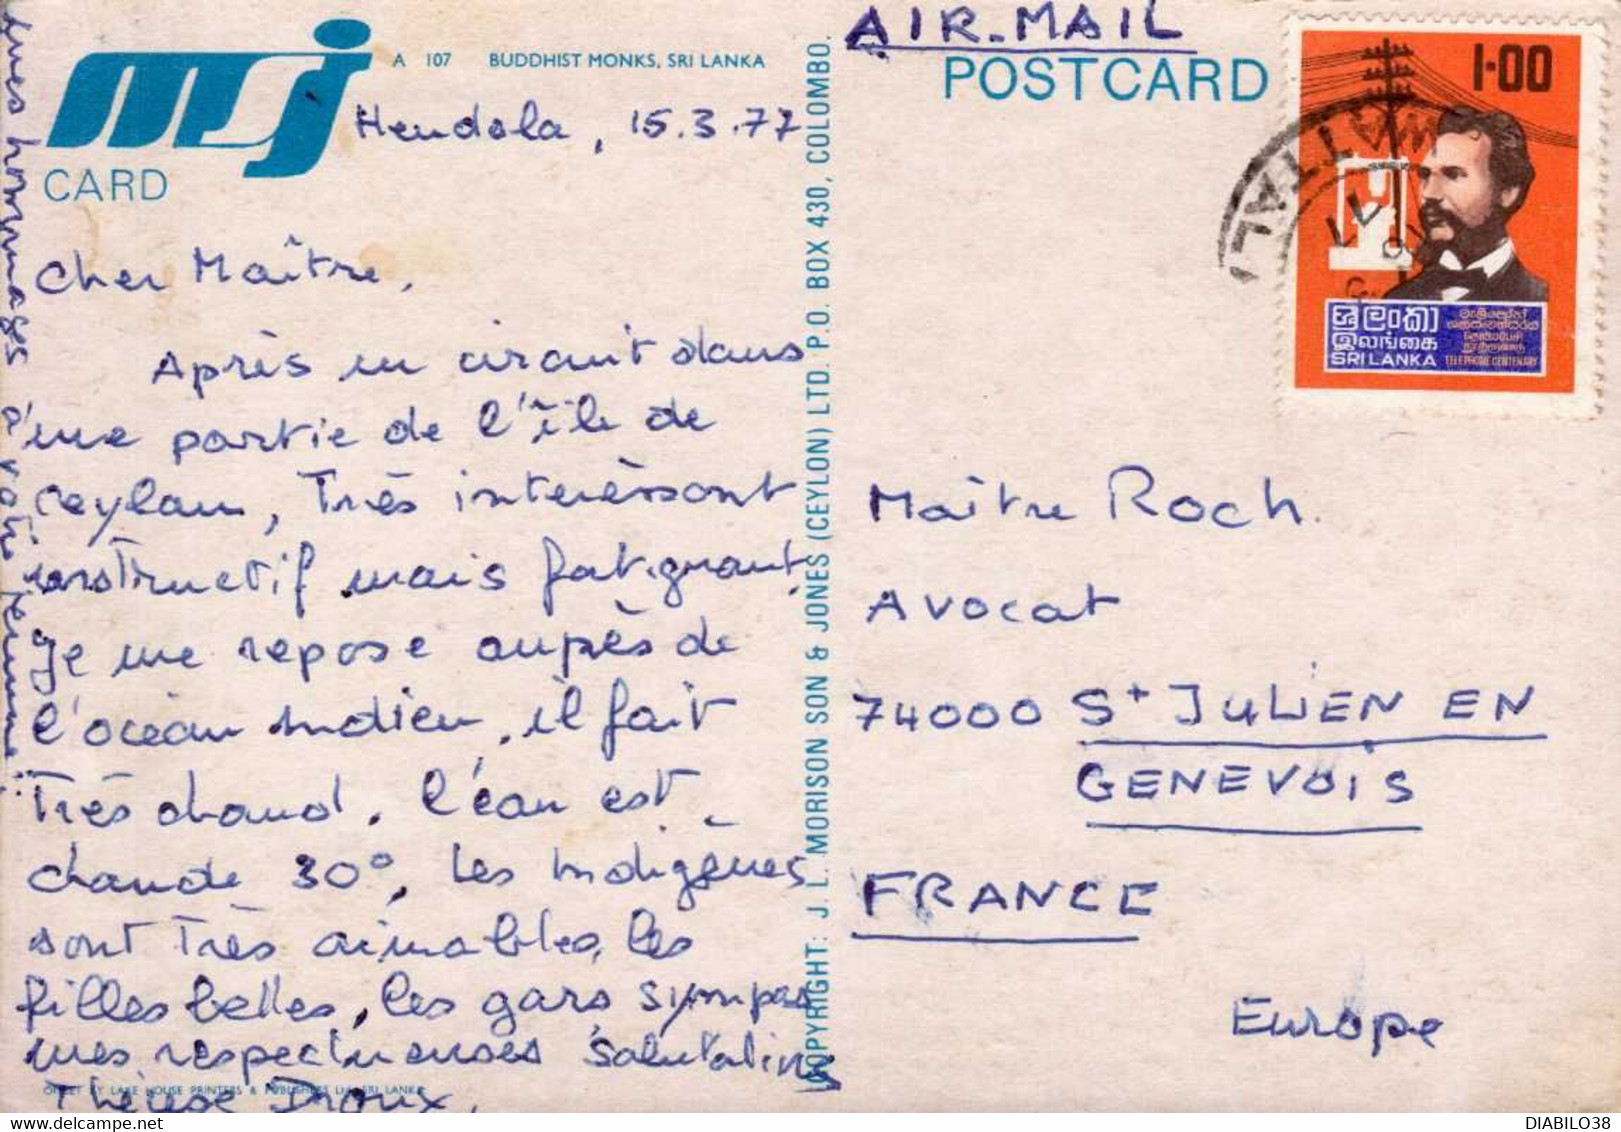 msj
CARD
A 107 BUDDHIST MONKS, SRI LANKA
Hendala, 15.3.77
Cher Maître,
Après un circuit dans
une partie de l'île de
Ceylan, très interèssant
instructif mais fatiguant,
Je me repose auprès de
l'océan Indien, il fait
très chaud, l'eau est
chaude 30°, les Indigènes
sont très aimables, les
filles belles, les gars sympas
mes respectueuses salutations
Thérèse Droux.
mes hommages à votre femme
OFFSET BY LAKE HOUSE PRINTERS & PUBLISHERS LTD. SRI LANKA
COPYRIGHT: J. L. MORISON SON & JONES (CEYLON) LTD. P.O. BOX 430, COLOMBO.
AIR-MAIL
POSTCARD
1-00
WATTALA
ශ්‍රී ලංකා
இலங்கை
SRI LANKA
TELEPHONE CENTENARY
Maître Roch.
Avocat
74000 St JULIEN EN
GENEVOIS
FRANCE
Europe
DIABILO38